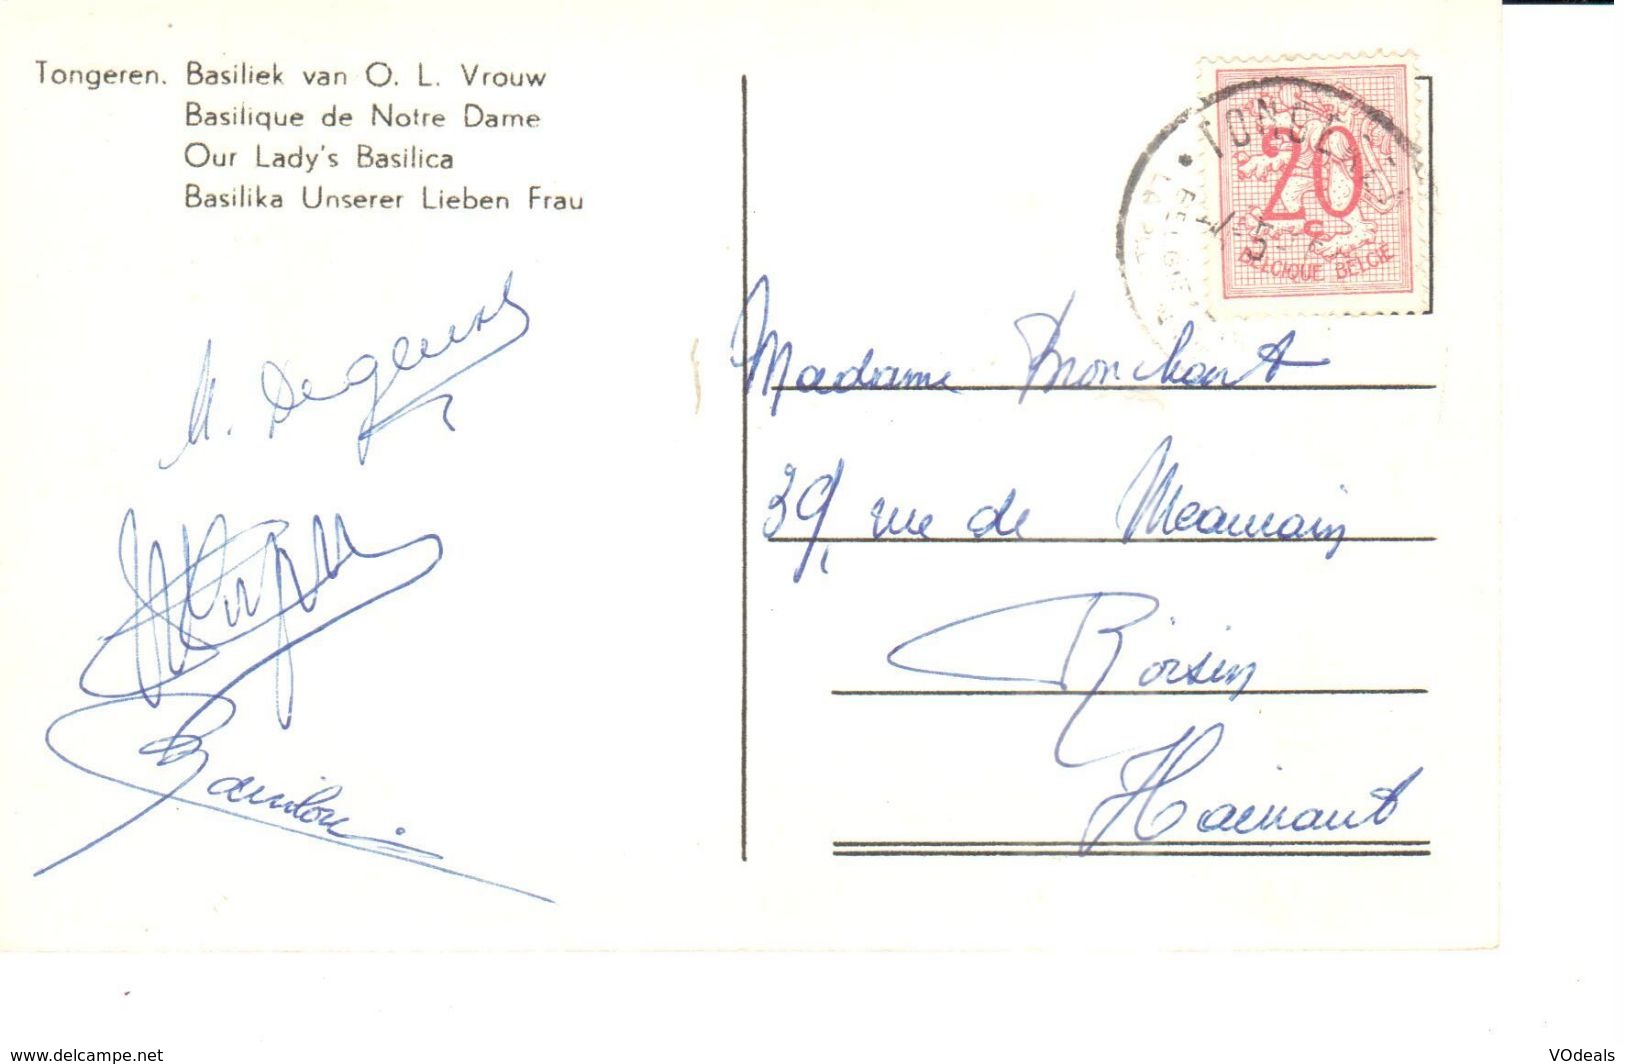 Tongeren. Basiliek van O. L. Vrouw
Basilique de Notre Dame
Our Lady's Basilica
Basilika Unserer Lieben Frau
20 c
BELGIQUE BELGIË
Madame Bronchart
39, rue de Meaurain
Roisin
Hainaut
www.delcampe.net
VOdeals